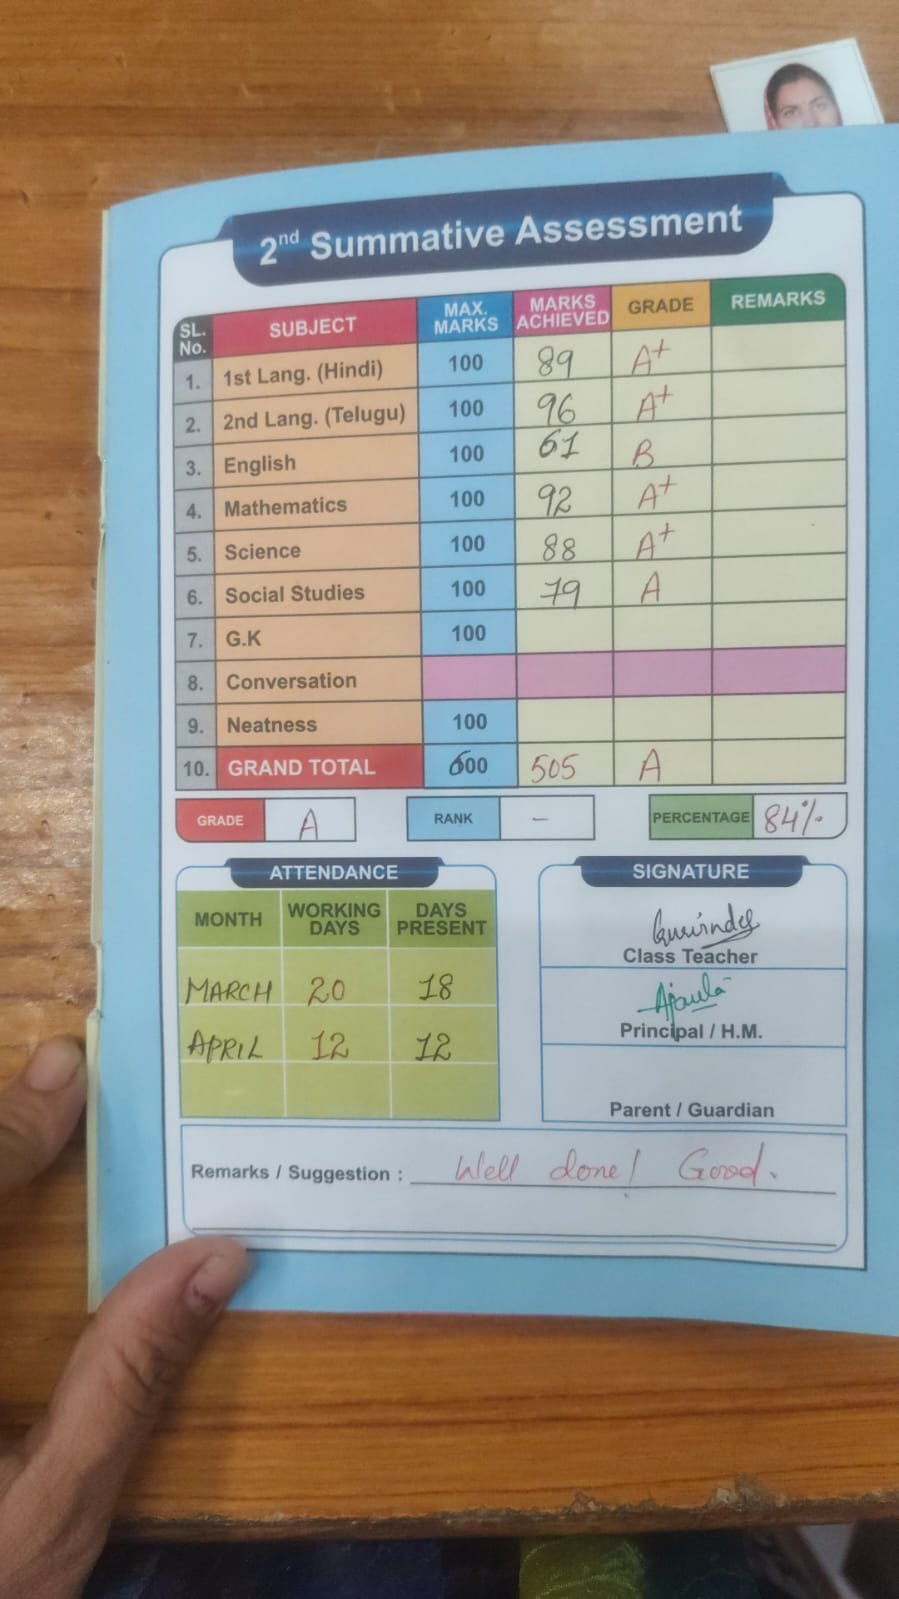 2nd Summative Assessment
SL. No. SUBJECT MAX. MARKS MARKS ACHIEVED GRADE REMARKS
1. 1st Lang. (Hindi) 100 89 A+
2. 2nd Lang. (Telugu) 100 96 A+
3. English 100 61 B
4. Mathematics 100 92 A+
5. Science 100 88 A+
6. Social Studies 100 79 A
7. G.K 100
8. Conversation
9. Neatness 100
10. GRAND TOTAL 600 505 A
GRADE A RANK - PERCENTAGE 84%
ATTENDANCE
MONTH WORKING DAYS DAYS PRESENT
MARCH 20 18
APRIL 12 12
SIGNATURE
Class Teacher
Principal / H.M.
Parent / Guardian
Remarks / Suggestion : Well done! Good.